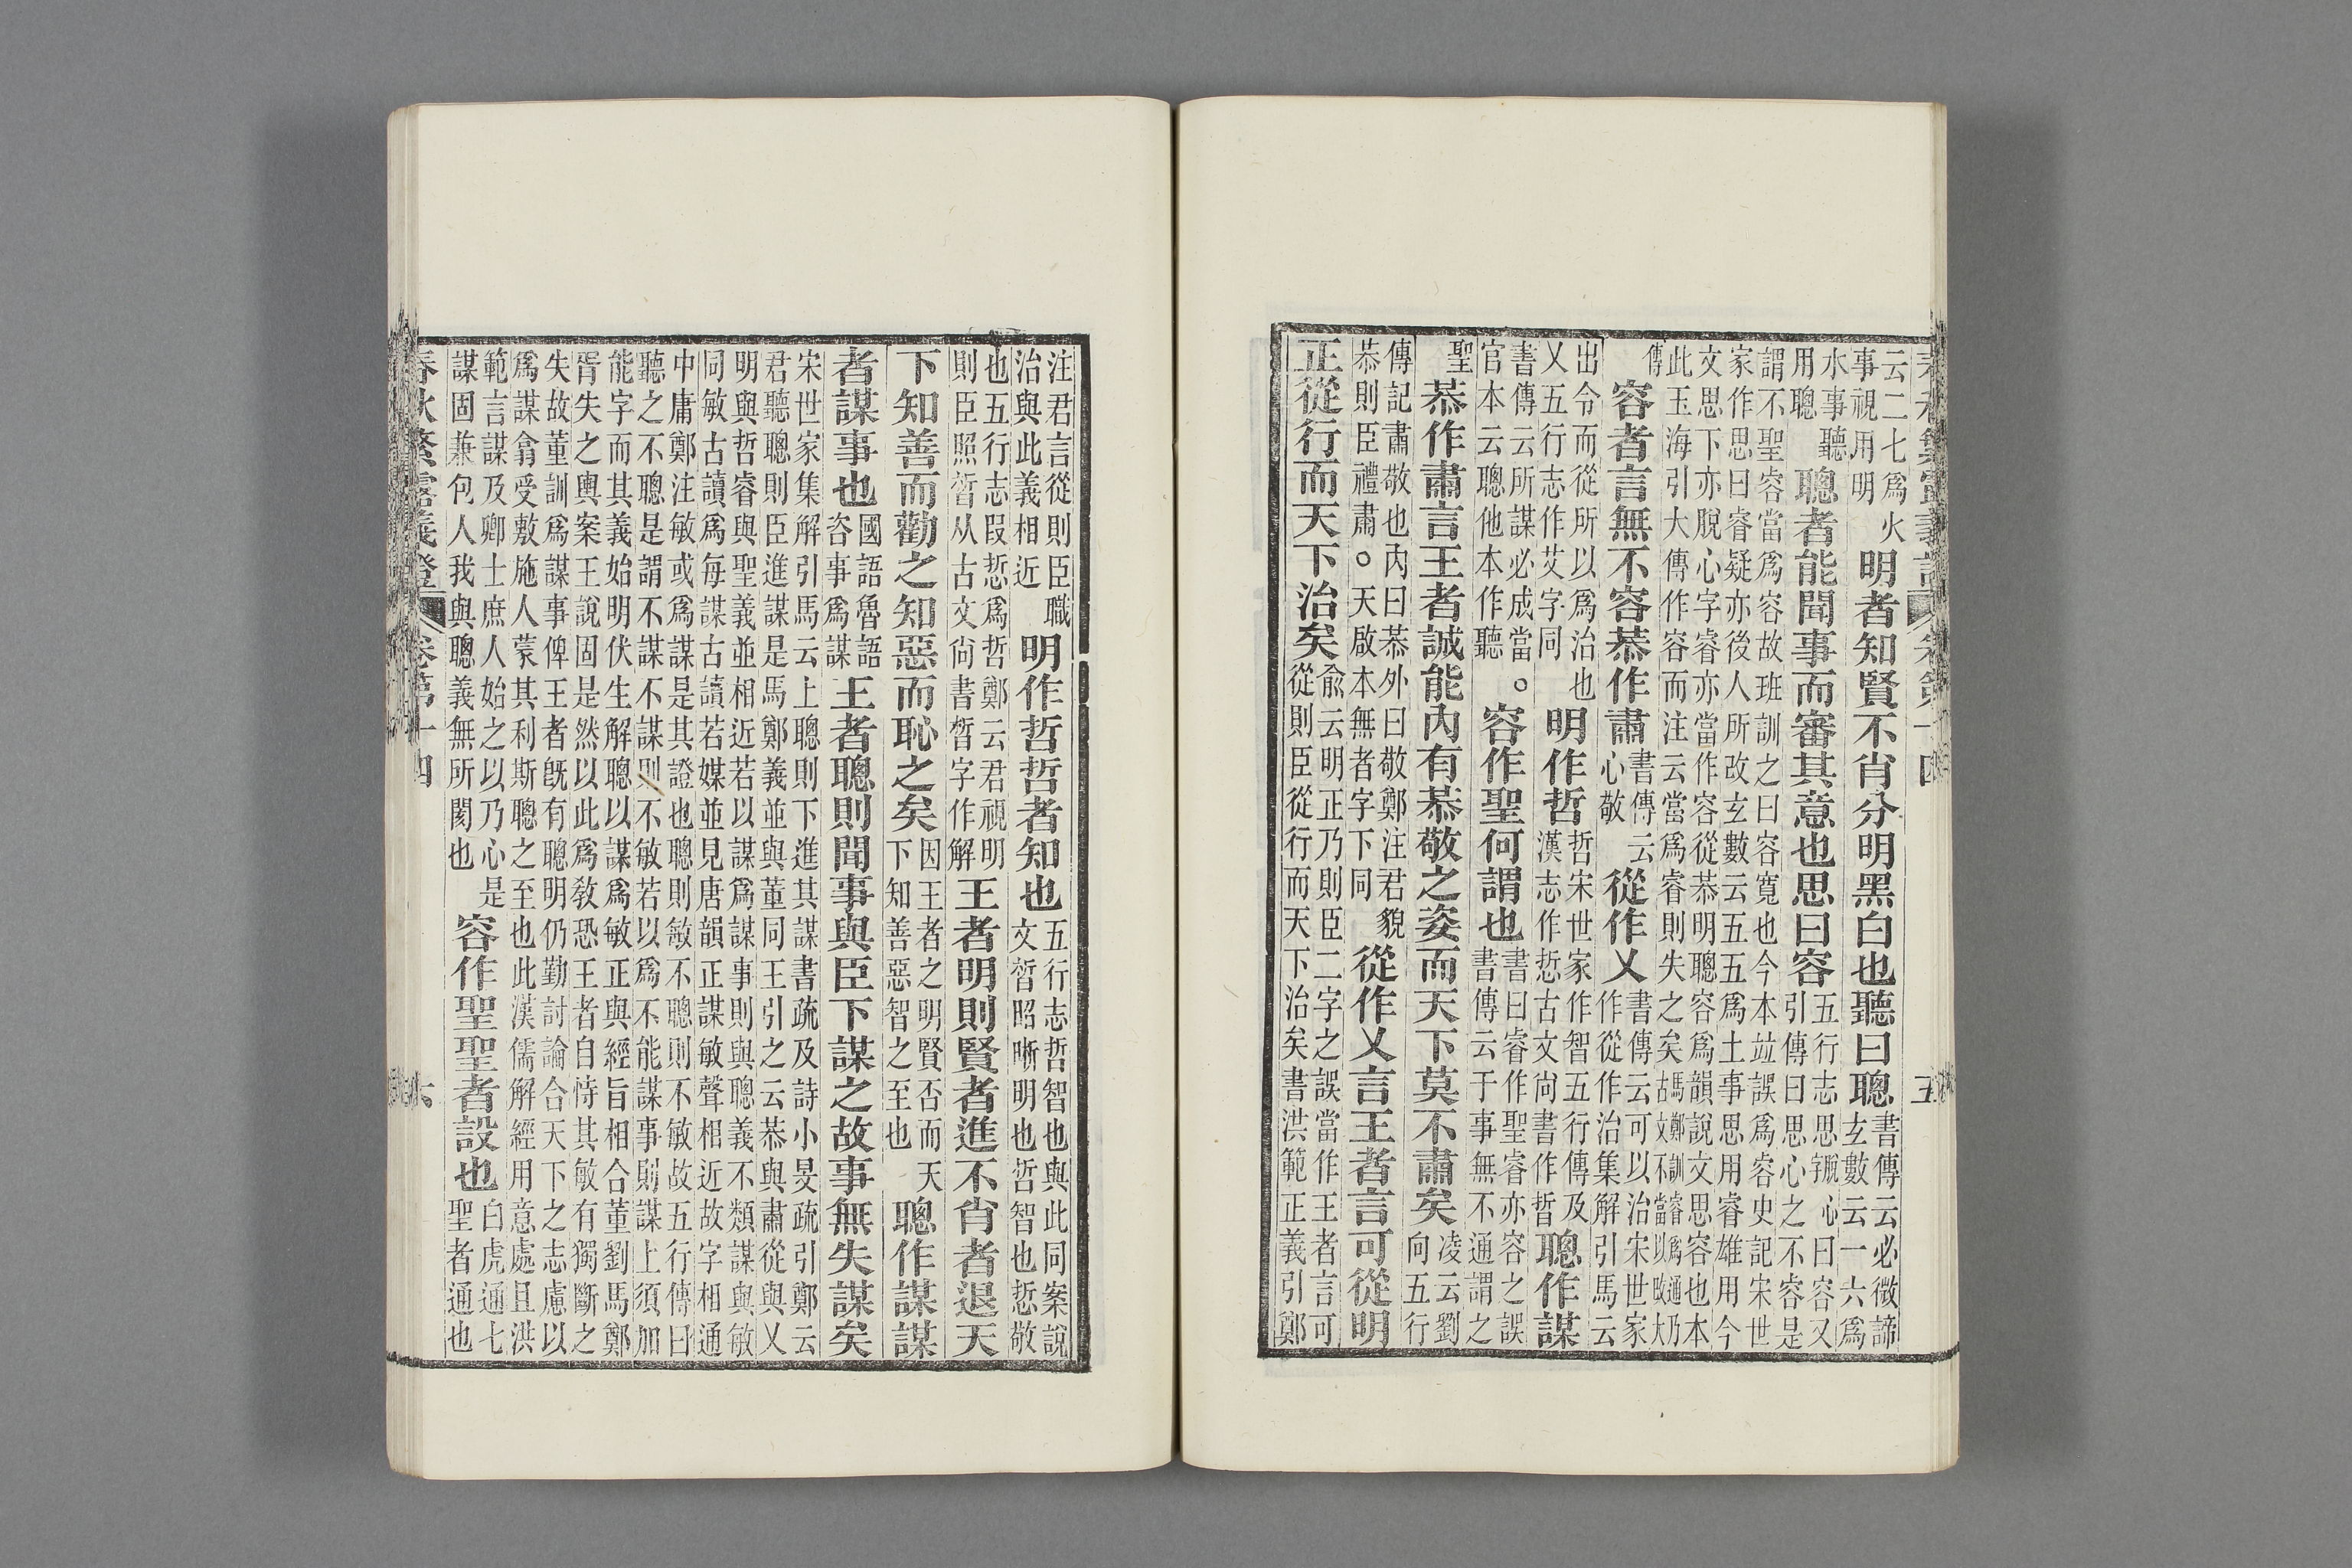 春秋繁露義證 卷第十四 五
云二七爲火
事視用明
明者知賢不肖分明黑白也聽曰聰
書傳云必徵諦
玄數云一六爲
水事聽
用聰
聰者能聞事而審其意也思曰容
五行志思思字脫心曰容又
引傳曰思心之不容是
謂不聖容當爲容故班訓之曰容寬也今本竝誤爲容史記宋世
家作思曰睿疑亦後人所改玄數云五五爲土事思用睿雄用今
文思下亦脫心字睿亦當作容從恭明聰容爲韻說文思容也本
此玉海引大傳作容而注云當爲睿則失之矣馬鄭訓睿爲通乃古文不當以改大
傳
容者言無不容恭作肅
書傳云
心敬
從作乂
書傳云可以治宋世家
作從作治集解引馬云
出令而從所以爲治也
乂五行志作艾字同
明作哲
哲宋世家作智五行傳及
漢志作悊古文尚書作晢
聰作謀
書傳云所謀必成當。
官本云聰他本作聽
容作聖何謂也
書曰睿作聖睿亦容之誤
書傳云于事無不通謂之
聖
恭作肅言王者誠能內有恭敬之姿而天下莫不肅矣
淩云劉
向五行
傳記肅敬也內曰恭外曰敬鄭注君貌
恭則臣禮肅。天啟本無者字下同
從作乂言王者言可從明
正從行而天下治矣
俞云明正乃則臣二字之誤當作王者言可
從則臣從行而天下治矣書洪範正義引鄭
注君言從則臣職
治與此義相近
明作哲哲者知也
五行志哲智也與此同案說
文晢昭晣明也哲智也悊敬
也五行志叚悊爲哲鄭云君視明
則臣照晢从古文尚書晢字作解
王者明則賢者進不肖者退天
下知善而勸之知惡而恥之矣
因王者之明賢否而天
下知善惡智之至也
聰作謀謀
者謀事也
國語魯語
咨事爲謀
王者聰則聞事與臣下謀之故事無失謀矣
宋世家集解引馬云上聰則下進其謀書疏及詩小旻疏引鄭云
君聽聰則臣進謀是馬鄭義並與董同王引之云恭與肅從與乂
明與哲睿與聖義並相近若以謀爲謀事則與聰義不類謀與敏
同敏古讀爲每謀古讀若媒並見唐韻正謀敏聲相近故字相通
中庸鄭注敏或爲謀是其證也聰則敏不聰則不敏故五行傳曰
聽之不聰是謂不謀不謀則不敏若以爲不能謀事則謀上須加
能字而其義始明伏生解聰以謀爲敏正與經旨相合董劉馬鄭
胥失之輿案王說固是然以此爲敎恐王者自恃其敏有獨斷之
失故董訓爲謀事俾王者旣有聰明仍勤討論合天下之志慮以
爲謀翕受敷施人蒙其利斯聰之至也此漢儒解經用意處且洪
範言謀及卿士庶人始之以乃心是
謀固兼包人我與聰義無所閡也
容作聖聖者設也
白虎通七
聖者通也
春秋繁露義證 卷第十四 六